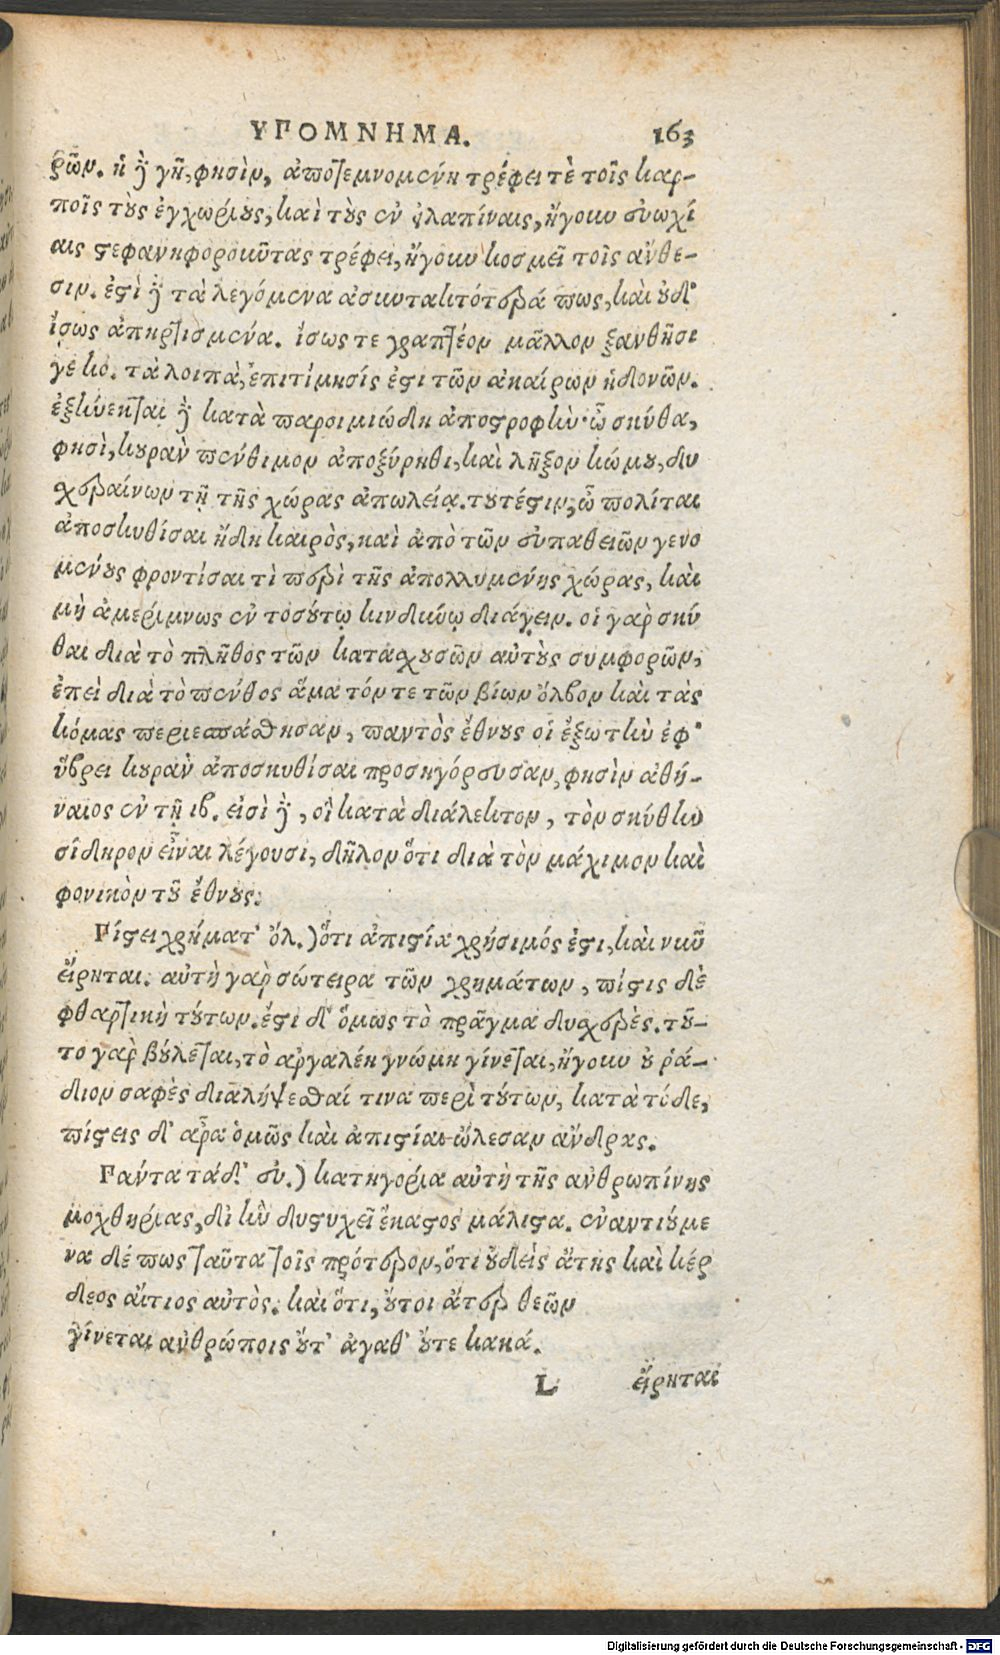 ΥΠΟΜΝΗΜΑ. 163
ρῶν. ἡ γὰρ γῆ, φησὶν, ἀποτεμνομένη τρέφει τὲ τοῖς καρ-
ποῖς τοὺς ἐγχωρίους, καὶ τοὺς ἐν εἰλαπίναις, ἤγουν εὐωχί
αις στεφανηφοροῦντας τρέφει, ἤγουν κοσμεῖ τοῖς ἄνθε-
σιν. ἐστὶ γὰρ τὰ λεγόμενα ἀσυντακτότερά πως, καὶ οὐδ'
ἴσως ἀπηρτισμένα. ἴσως τε γραπτέον μᾶλλον ξανθῆσι
γε κο. τὰ λοιπὰ, ἐπιτίμησίς ἐστι τῶν ἀκαίρων ἡδονῶν.
ἐξήνεκται γὰρ κατὰ παροιμιώδη ἀποστροφήν· ὦ σκύθα,
φησὶ, κουρὰν πένθιμον ἀποξύρηθι, καὶ λῆξον κώμου, δυ
σχεραίνων τῇ τῆς χώρας ἀπωλείᾳ. τουτέστιν, ὦ πολίται
ἀποσκυθίσαι ἤδη καιρὸς, καὶ ἀπὸ τῶν εὐπαθειῶν γενο
μένους φροντίσαι τὶ περὶ τῆς ἀπολλυμένης χώρας, καὶ
μὴ ἀμερίμνως ἐν τοσούτῳ κινδύνῳ διάγειν. οἱ γὰρ σκύ
θαι διὰ τὸ πλῆθος τῶν κατασχουσῶν αὐτοὺς συμφορῶν,
ἐπεὶ διὰ τὸ πένθος ἅμα τόν τε τῶν βίων ὄλβον καὶ τὰς
κόμας περιεσπάσθησαν, παντὸς ἔθνους οἱ ἔξω τὴν ἐφ'
ὕβρει κουρὰν ἀποσκυθίσαι προσηγόρευσαν, φησὶν ἀθή-
ναιος ἐν τῇ ιβ. εἰσὶ γὰρ, οἳ κατὰ διάλεκτον, τὸν σκύθην
σίδηρον εἶναι λέγουσι, δῆλον ὅτι διὰ τὸν μάχιμον καὶ
φονικὸν τοῦ ἔθνους.
Πίστει χρήματ' ὄλ.) ὅτι ἀπιστία χρήσιμός ἐστι, καὶ νῦν
εἴρηται. αὐτὴ γὰρ σώτειρα τῶν χρημάτων, πίστις δὲ
φθαρτικὴ τούτων. ἔστι δ' ὅμως τὸ πρᾶγμα δυσχερὲς. τοῦ-
το γὰρ βούλεται, τὸ ἀργαλέη γνώμη γίνεται, ἤγουν οὐ ῥά-
διον σαφὲς διαλήψεσθαί τινα περὶ τούτων, κατὰ τόδε,
πίστεις δ' ἄρα ὁμῶς καὶ ἀπιστίαι ὤλεσαν ἄνδρας.
Πάντα τάδ' ἐν.) κατηγορία αὐτὴ τῆς ἀνθρωπίνης
μοχθηρίας, δι' ἣν δυστυχεῖ ἕκαστος μάλιστα. ἐναντιούμε
να δέ πως ταῦτα τοῖς πρότερον, ὅτι οὐδεὶς ἄτης καὶ κέρ
δεος αἴτιος αὐτὸς. καὶ ὅτι, οὔτοι ἄτερ θεῶν
γίνεται ἀνθρώποις οὔτ' ἀγαθ' οὔτε κακά.
L εἴρηται
Digitalisierung gefördert durch die Deutsche Forschungsgemeinschaft - DFG